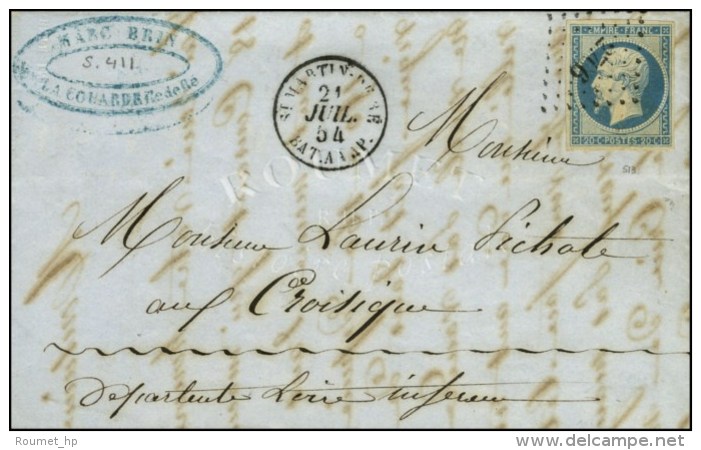 MARC BRIN
S. 411.
LA COUARDE Ile de Re
ST MARTIN-DE-RE
21
JUIL.
54
BAT. A VAP.
EMPIRE FRANC
20 C POSTES 20 C
Monsieur
Monsieur Laurin Pichote
au Croisique
departente Loire inferieure
ROUMET
Roumet_hp
delcampe.net